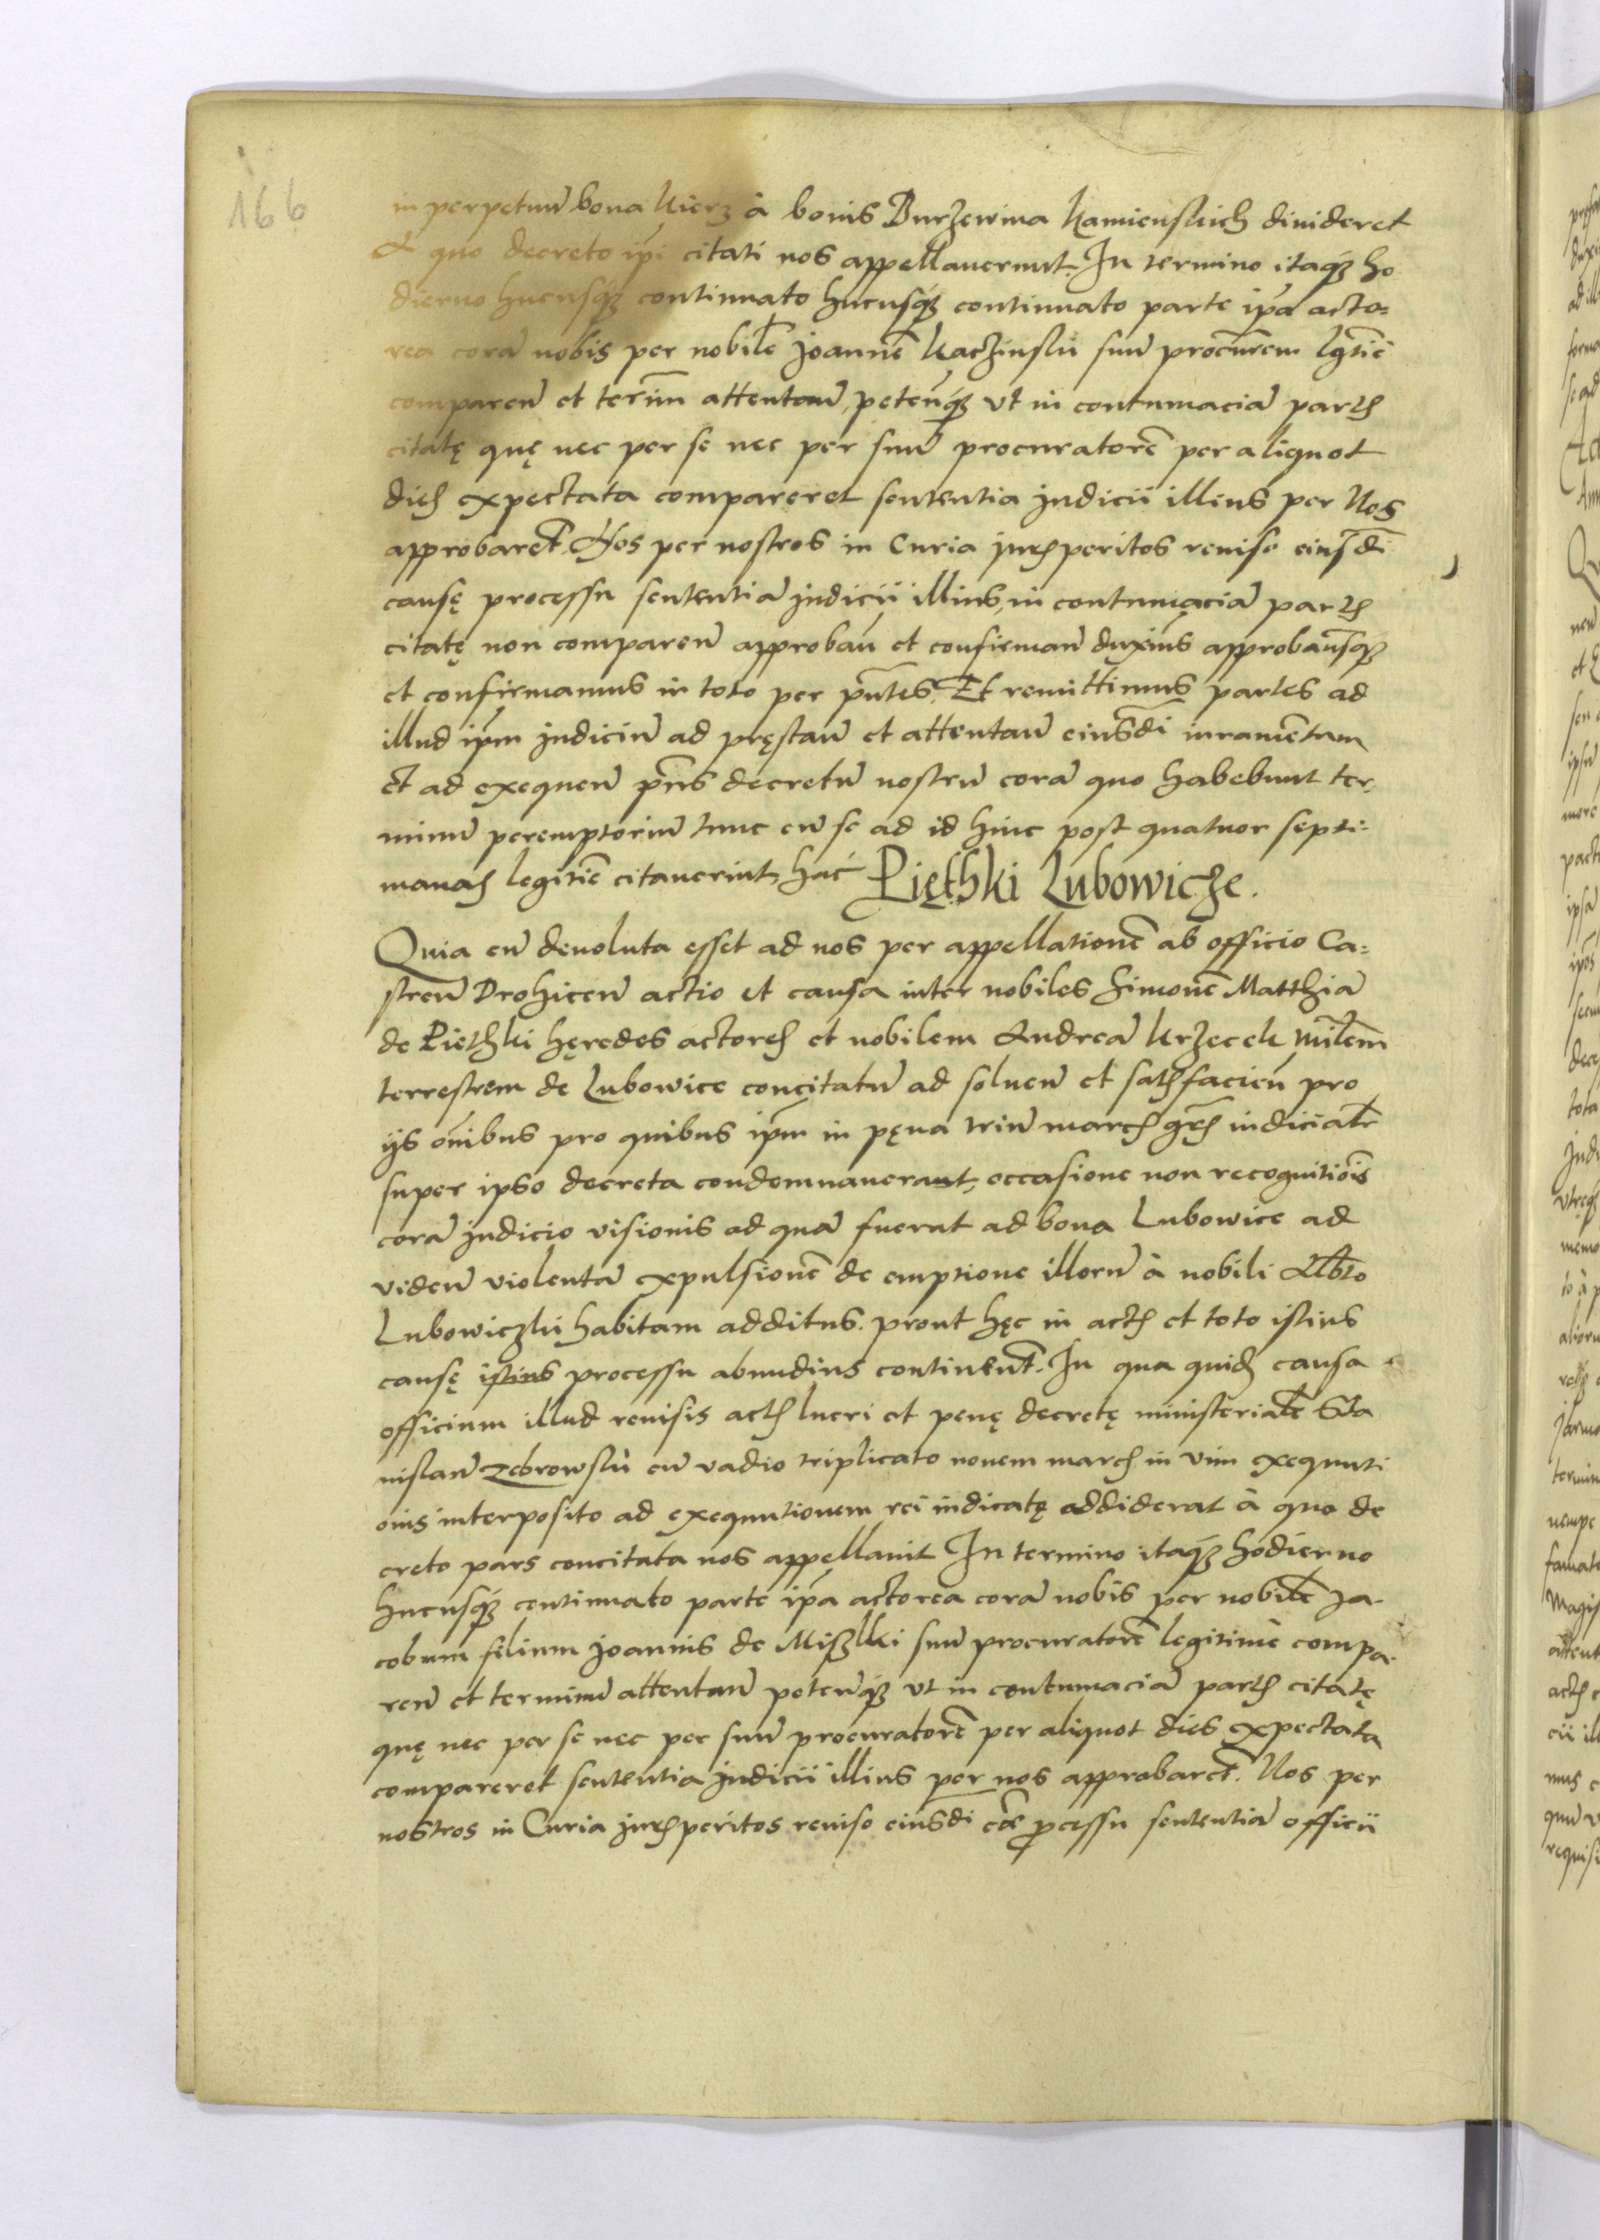 166
in perpetuũ bona Kierz à bonis Burzewina Kamienskich diuideret
A quo decreto ip̃i citati nos appellauerunt. In termino itaq3 ho
dierno hucusq3 continuato hucusq3 continuato parte ip̃a acto=
rea corã nobis per nobilẽ Joannẽ Kaczinskii suũ procũrem lgtiẽ
comparen̄ et termi͂n attentan̄, peten̄q3 vt in contumaciã partʒ
citatę quę nec per se nec per suũ procuratorẽ per aliquot
dieʒ expectata compareret sententia judicii illius per Nos
approbaret͂. Nos per nostros in Curia jurʒperitos reuiso eiusdĩ
causę processu sententiã judicii illius, in contumaciã partʒ
citatę non comparen̄ approban̄ et confirman̄ duxim͂s approbam͂sq3
et confirmamus in toto per pñtes. Et remittimus partes ad
illud ip̃m judiciũ ad pręstan̄ et attentan̄ eiusdĩ iuramẽtum
et ad exequen̄ pñs decretũ nostrũ corã quo habebunt ter,
minũ peremptoriũ tunc cũ se ad id hinc post quatuor septi=
manaʒ legitiẽ citauerint, hac̄ Pięthki Lubowicze.
Quia cũ deuoluta esset ad nos per appellationẽ ab officio Ca=
stren̄ Drohicen̄ actio et causa inter nobiles Simonẽ Matthiã
de Piethki hęredes actoreʒ et nobilem Andreã Krzecek mil͂em
terrestrem de Lubowice concitatũ ad soluen̄ et satʒfacien̄ pro
ijs om͂ibus pro quibus ip̃m in pęna triũ marcʒ grʒ iudicialʒ
super ipso decreta condemnauerant, occasione non recognitiõis
corã judicio visionis ad quã fuerat ad bona Lubowice ad
viden̄ violentã expulsionẽ de emptione illorũ à nobili Alb̃to
Lubowiczki habitam additus. prout hęc in actʒ et toto istius
causę istius processu abundius continent͂. In qua quidʒ causa
officium illud reuisis actʒ lucri et penę decretę ministerialẽ Sta
nislaũ Zebrowskii cũ vadio triplicato nouem marcʒ in vim exequuti
onis interposito ad exequutionem rei iudicatę addiderat à quo de
creto pars concitata nos appellauit In termino itaq3 hodierno
hucusq3 continuato parte ip̃a actorea corã nobis per nobilẽ Ja-
cobum filium Joannis de Miszlki suũ procuratorẽ legitimè compa-
ren̄ et terminũ attentan̄ peten̄q3 vt in contumaciã partʒ citatę
quę nec per se nec per suũ procuratorẽ per aliquot dies expectata
compareret sententia judicii illius per nos approbaret͂. Nos per
nostros in Curia jurʒperitos reuiso eiusdi cãe p̃cessu sententiã officii